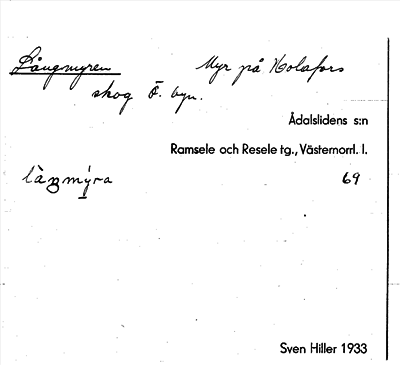 Långmyren Myr på Holafors
skog Ö. byn.
Ådalslidens s:n
Ramsele och Resele tg., Västernorrl. l.
làŋmýra 69
Sven Hiller 1933